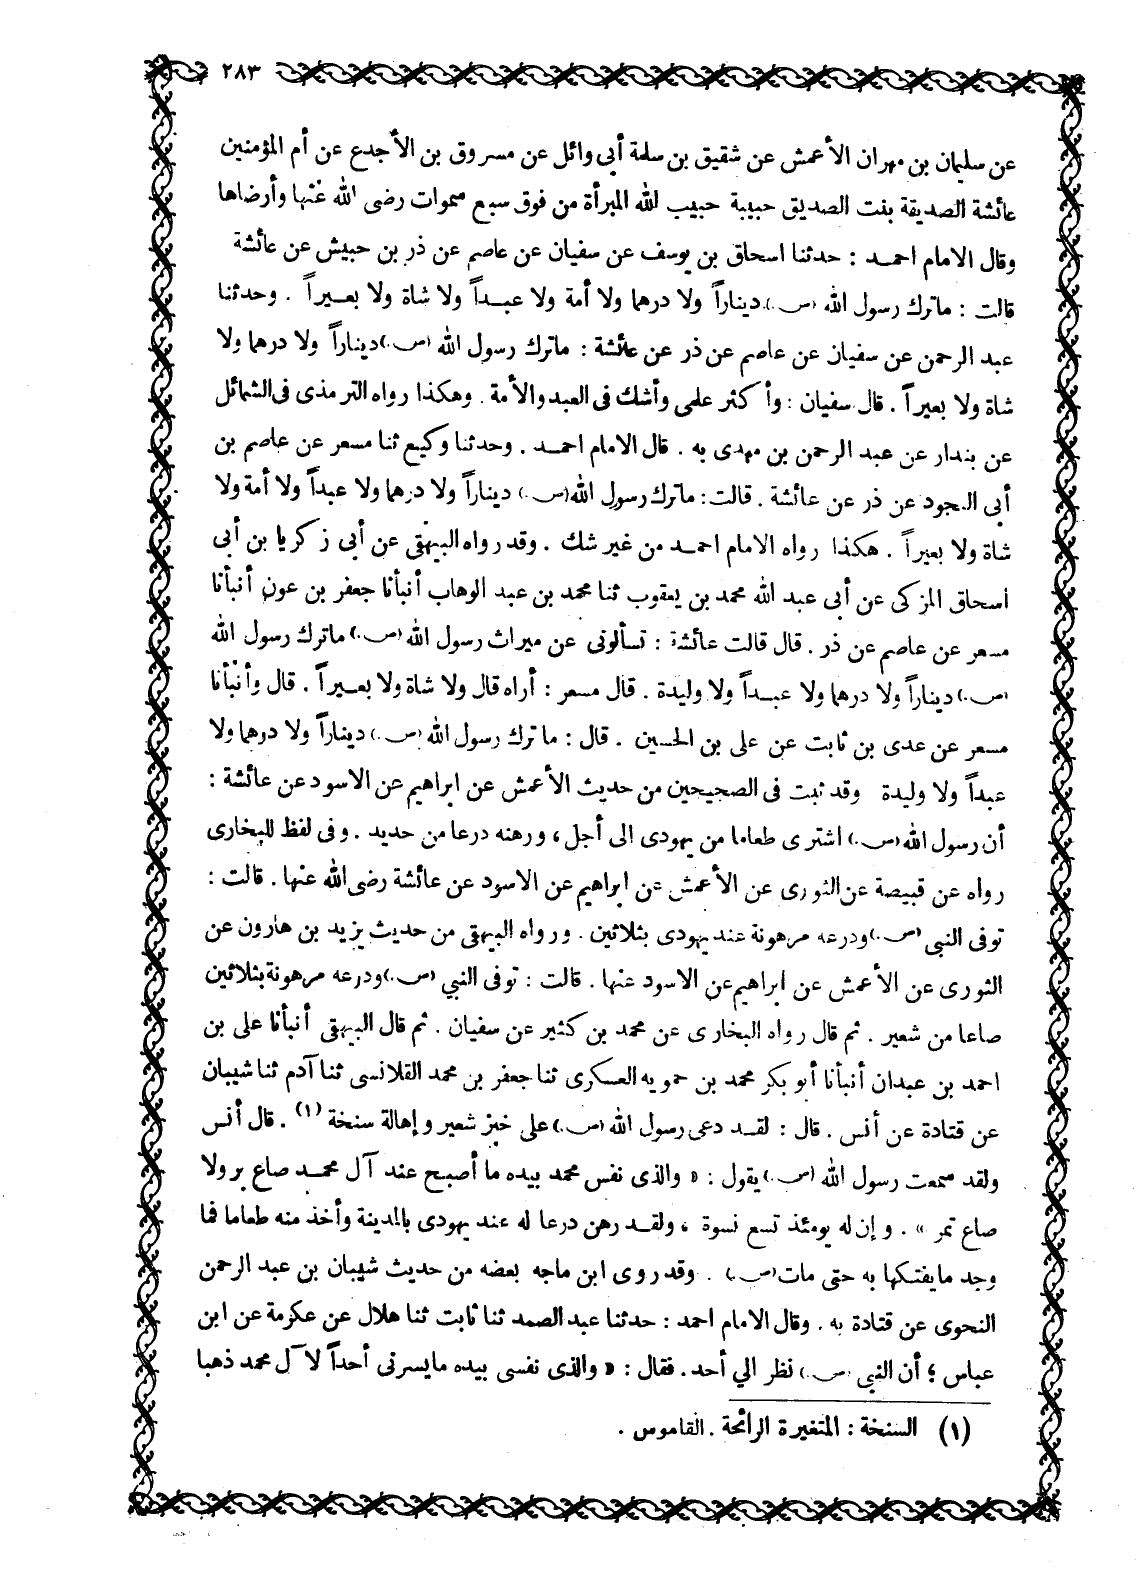 ٢٨٣
عن سليمان بن مهران الأعمش عن شقيق بن سلمة أبى وائل عن مسروق بن الأجدع عن أم المؤمنين
عائشة الصديقة بنت الصديق حبيبة حبيب الله المبرأة من فوق سبع سموات رضى الله عنها وأرضاها
وقال الامام احمد : حدثنا اسحاق بن يوسف عن سفيان عن عاصم عن ذر بن حبيش عن عائشة
قالت : ماترك رسول الله (ص) ديناراً ولا درهما ولا أمة ولا عبداً ولا شاة ولا بعيراً . وحدثنا
عبد الرحمن عن سفيان عن عاصم عن ذر عن عائشة : ماترك رسول الله (ص) ديناراً ولا درهما ولا
شاة ولا بعيراً . قال سفيان : وأكثر علمى وأشك فى العبد والأمة . وهكذا رواه الترمذى فى الشمائل
عن بندار عن عبد الرحمن بن مهدى به . قال الامام احمد . وحدثنا وكيع ثنا مسعر عن عاصم بن
أبى النجود عن ذر عن عائشة . قالت : ماترك رسول الله (ص) ديناراً ولا درهما ولا عبداً ولا أمة ولا
شاة ولا بعيراً . هكذا رواه الامام احمد من غير شك . وقد رواه البيهقى عن أبى زكريا بن أبى
اسحاق المزكى عن أبى عبد الله محمد بن يعقوب ثنا محمد بن عبد الوهاب أنبأنا جعفر بن عون أنبأنا
مسعر عن عاصم عن ذر . قال قالت عائشة : تسألونى عن ميراث رسول الله (ص) ماترك رسول الله
(ص) ديناراً ولا درهما ولا عبداً ولا وليدة . قال مسعر : أراه قال ولا شاة ولا بعيراً . قال وأنبأنا
مسعر عن عدى بن ثابت عن على بن الحسين . قال : ماترك رسول الله (ص) ديناراً ولا درهما ولا
عبداً ولا وليدة وقد ثبت فى الصحيحين من حديث الأعمش عن ابراهيم عن الاسود عن عائشة :
أن رسول الله (ص) اشترى طعاما من يهودى الى أجل ، ورهنه درعا من حديد . وفى لفظ للبخارى
رواه عن قبيصة عن الثورى عن الأعمش عن ابراهيم عن الاسود عن عائشة رضى الله عنها . قالت :
توفى النبى (ص) ودرعه مرهونة عند يهودى بثلاثين . ورواه البيهقى من حديث يزيد بن هارون عن
الثورى عن الأعمش عن ابراهيم عن الاسود عنها . قالت : توفى النبي (ص) ودرعه مرهونة بثلاثين
صاعا من شعير . ثم قال رواه البخارى عن محمد بن كثير عن سفيان . ثم قال البيهقى أنبأنا على بن
احمد بن عبدان أنبأنا أبو بكر محمد بن حمويه العسكرى ثنا جعفر بن محمد القلانسى ثنا آدم ثنا شيبان
عن قتادة عن أنس . قال : لقد دعى رسول الله (ص) على خبز شعير وإهالة سنخة (١) . قال أنس
ولقد سمعت رسول الله (ص) يقول : « والذى نفس محمد بيده ما أصبح عند آل محمد صاع بر ولا
صاع تمر » . وإن له يومئذ تسع نسوة ، ولقد رهن درعا له عند يهودى بالمدينة وأخذ منه طعاما فما
وجد مايفتكها به حتى مات (ص) . وقد روى ابن ماجه بعضه من حديث شيبان بن عبد الرحمن
النحوى عن قتادة به . وقال الامام احمد : حدثنا عبد الصمد ثنا ثابت ثنا هلال عن عكرمة عن ابن
عباس ؛ أن النبى (ص) نظر الي أحد . فقال : « والذى نفسى بيده مايسرنى أحداً لآل محمد ذهبا
(١) السنخة : المتغيرة الرائحة . القاموس .